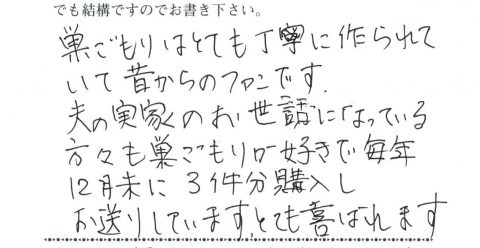 でも結構ですのでお書き下さい。
巣ごもりはとても丁寧に作られて
いて昔からのファンです.
夫の実家のお世話になっている
方々も巣ごもりが好きで毎年
12月末に3件分購入し
お送りしています,とても喜ばれます